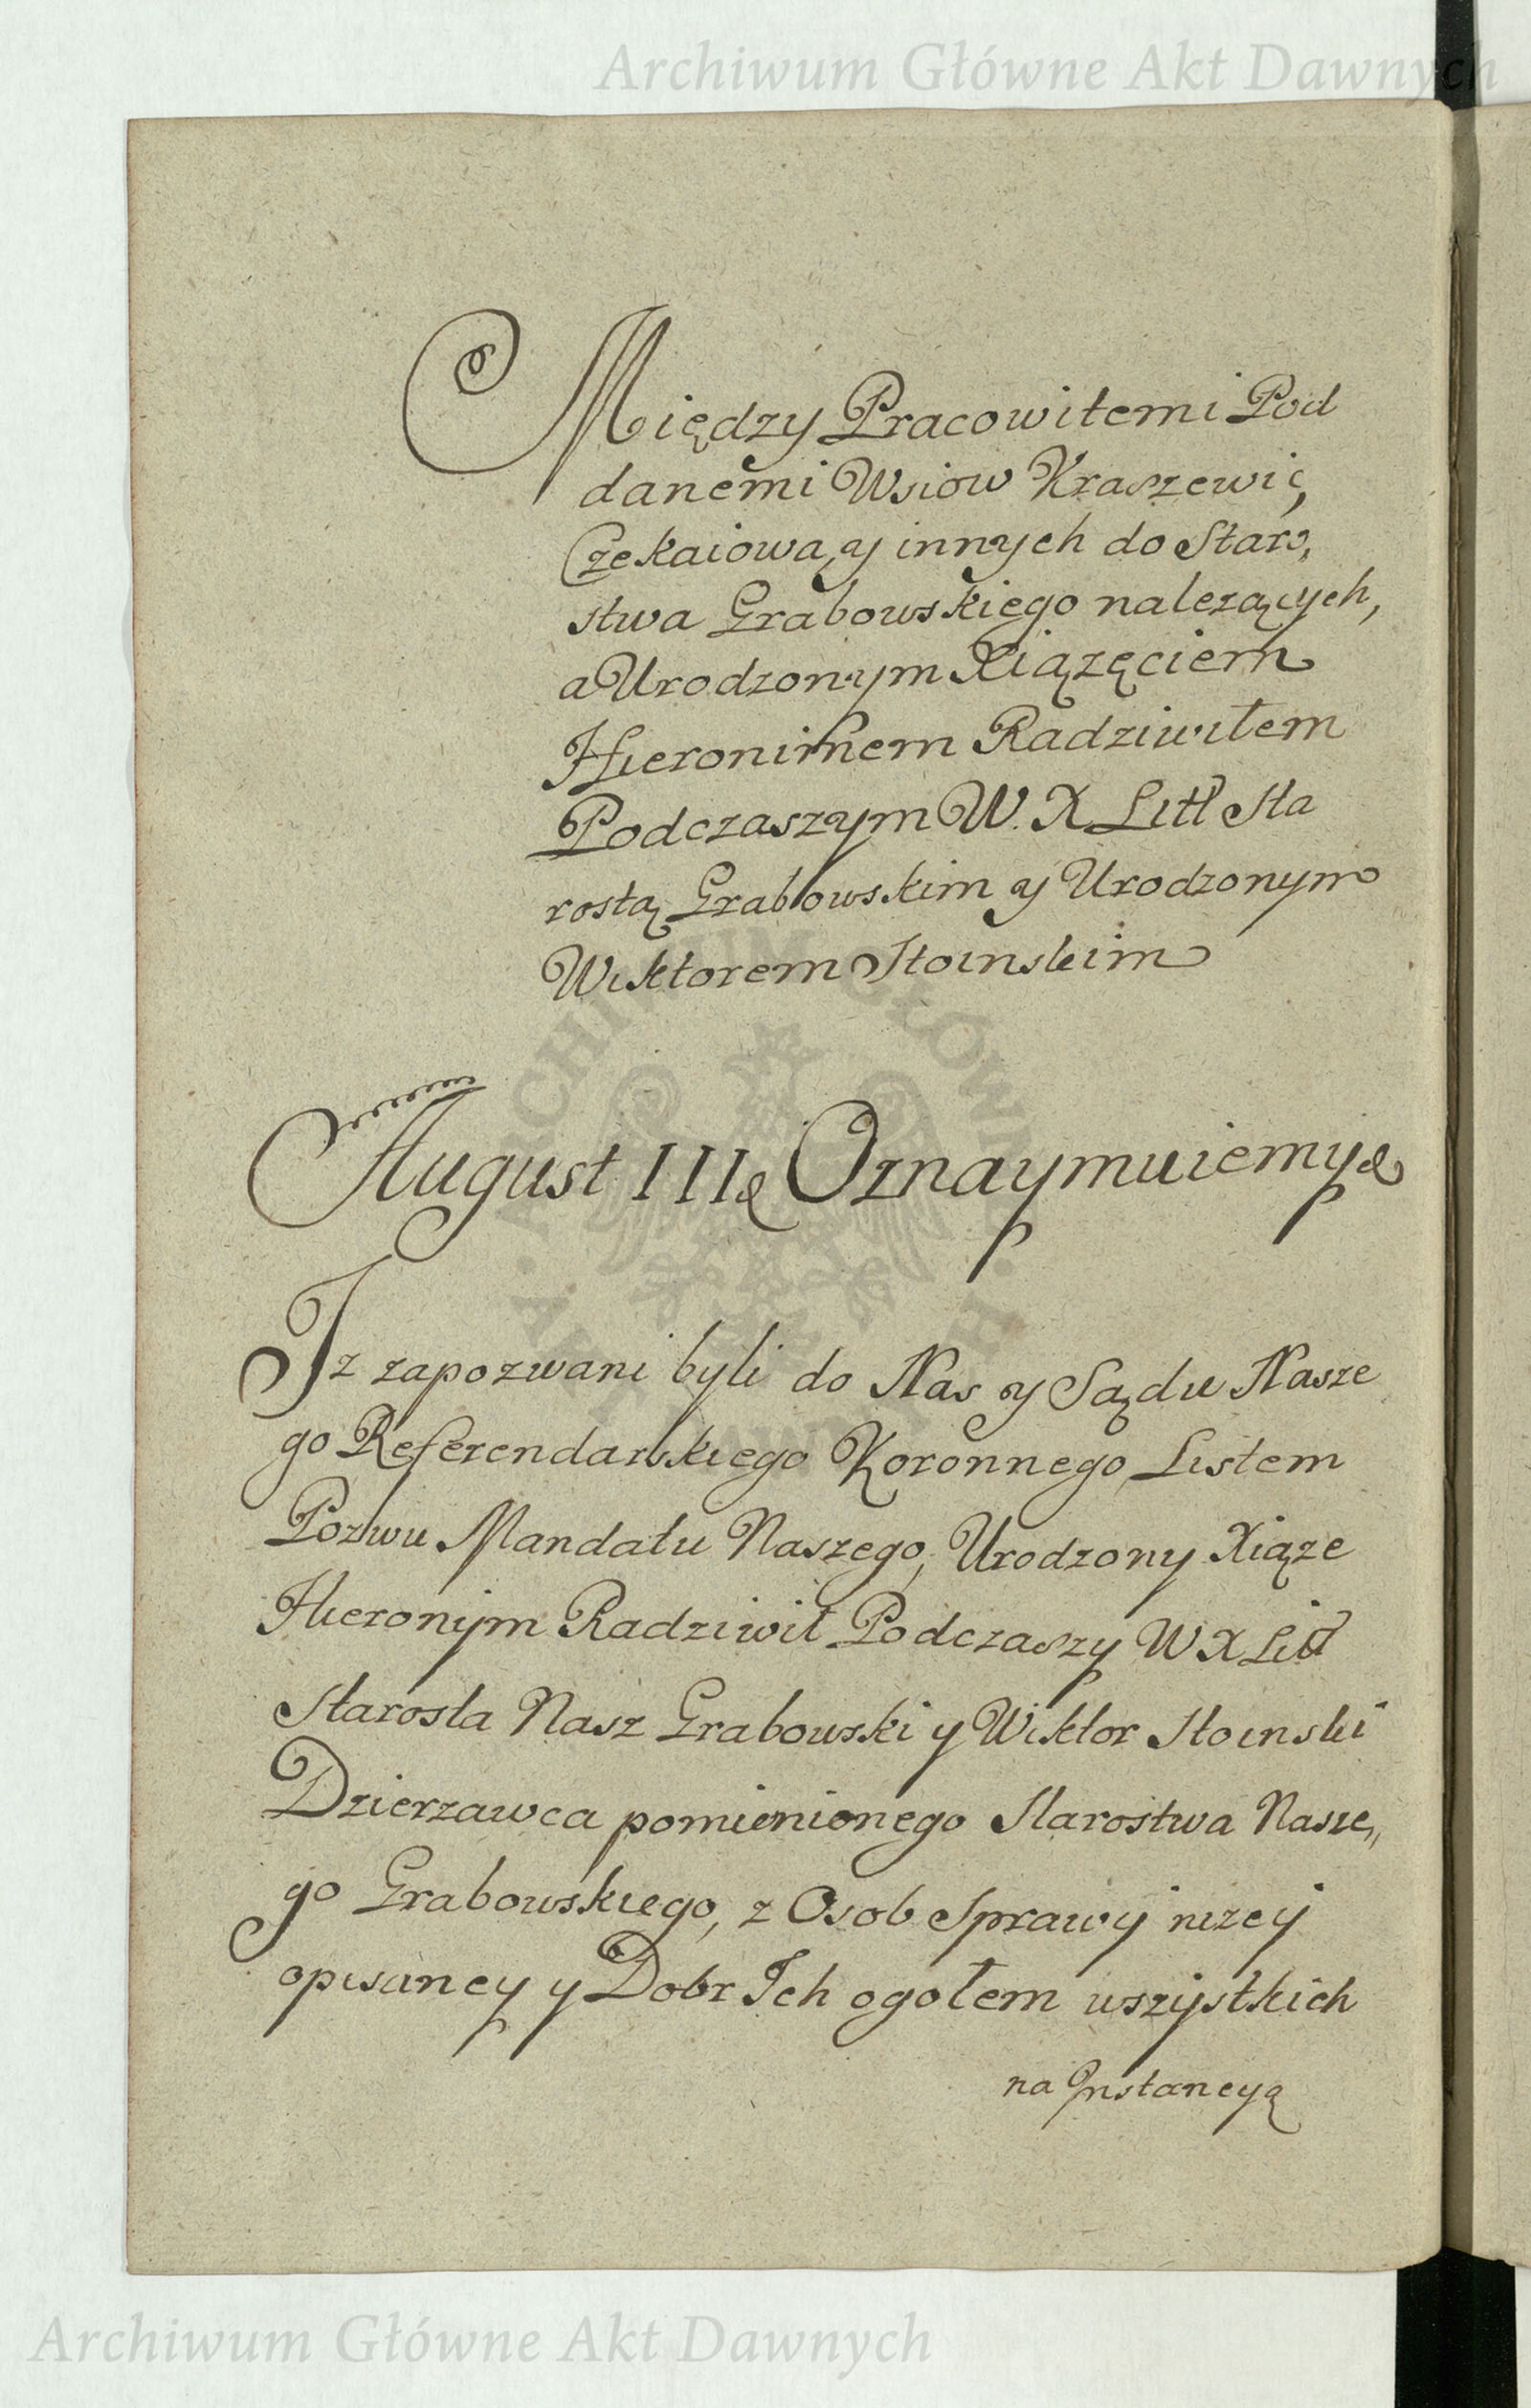 Archiwum Główne Akt Dawnych
Między Pracowitemi Pod
danemi Wsiow Kraszewic,
Czekaiowa, y innych do Staro,
stwa Grabowskiego nalezących,
a Urodzonym Xiązęciem
Hieronimem Radziwiłem
Podczaszym W. X Litt Sta
rostą Grabowskim y Urodzonym
Wiktorem Stoinskim
August III& Oznaymuiemy&
Iz zapozwani byli do Nas y Sądu Nasze
go Referendarskiego Koronnego Listem
Pozwu Mandatu Naszego, Urodzony Xiąze
Hieronijm Radziwił Podczaszy W X Litt
Starosta Nasz Grabowski y Wiktor Stoinski
Dzierzawca pomienionego Starostwa Nasze,,
go Grabowskiego, z Osob Sprawy nizey
opisaney y Dobr Ich ogołem wszystkich
na Instancyą
ARCHIWUM GŁÓWNE
AKT DAWNYCH
Archiwum Główne Akt Dawnych